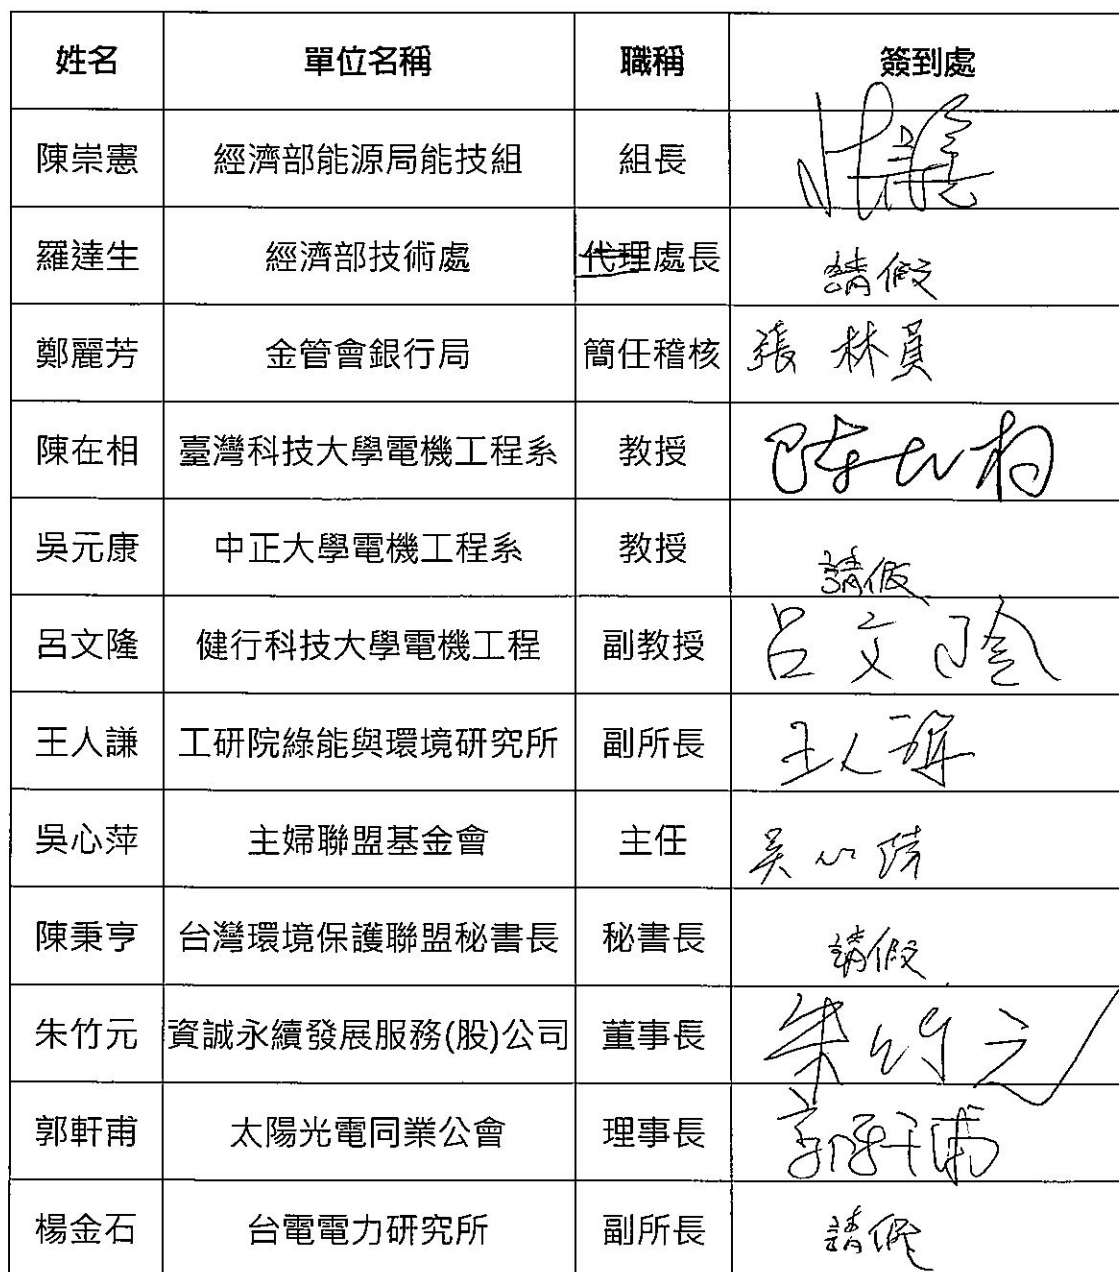 姓名 單位名稱 職稱 簽到處
陳崇憲 經濟部能源局能技組 組長
羅達生 經濟部技術處 代理處長 請假
鄭麗芳 金管會銀行局 簡任稽核 張林員
陳在相 臺灣科技大學電機工程系 教授 陳在相
吳元康 中正大學電機工程系 教授 請假
呂文隆 健行科技大學電機工程 副教授 呂文隆
王人謙 工研院綠能與環境研究所 副所長 王人謙
吳心萍 主婦聯盟基金會 主任 吳心萍
陳秉亨 台灣環境保護聯盟秘書長 秘書長 請假
朱竹元 資誠永續發展服務(股)公司 董事長 朱竹元
郭軒甫 太陽光電同業公會 理事長 郭軒甫
楊金石 台電電力研究所 副所長 請假